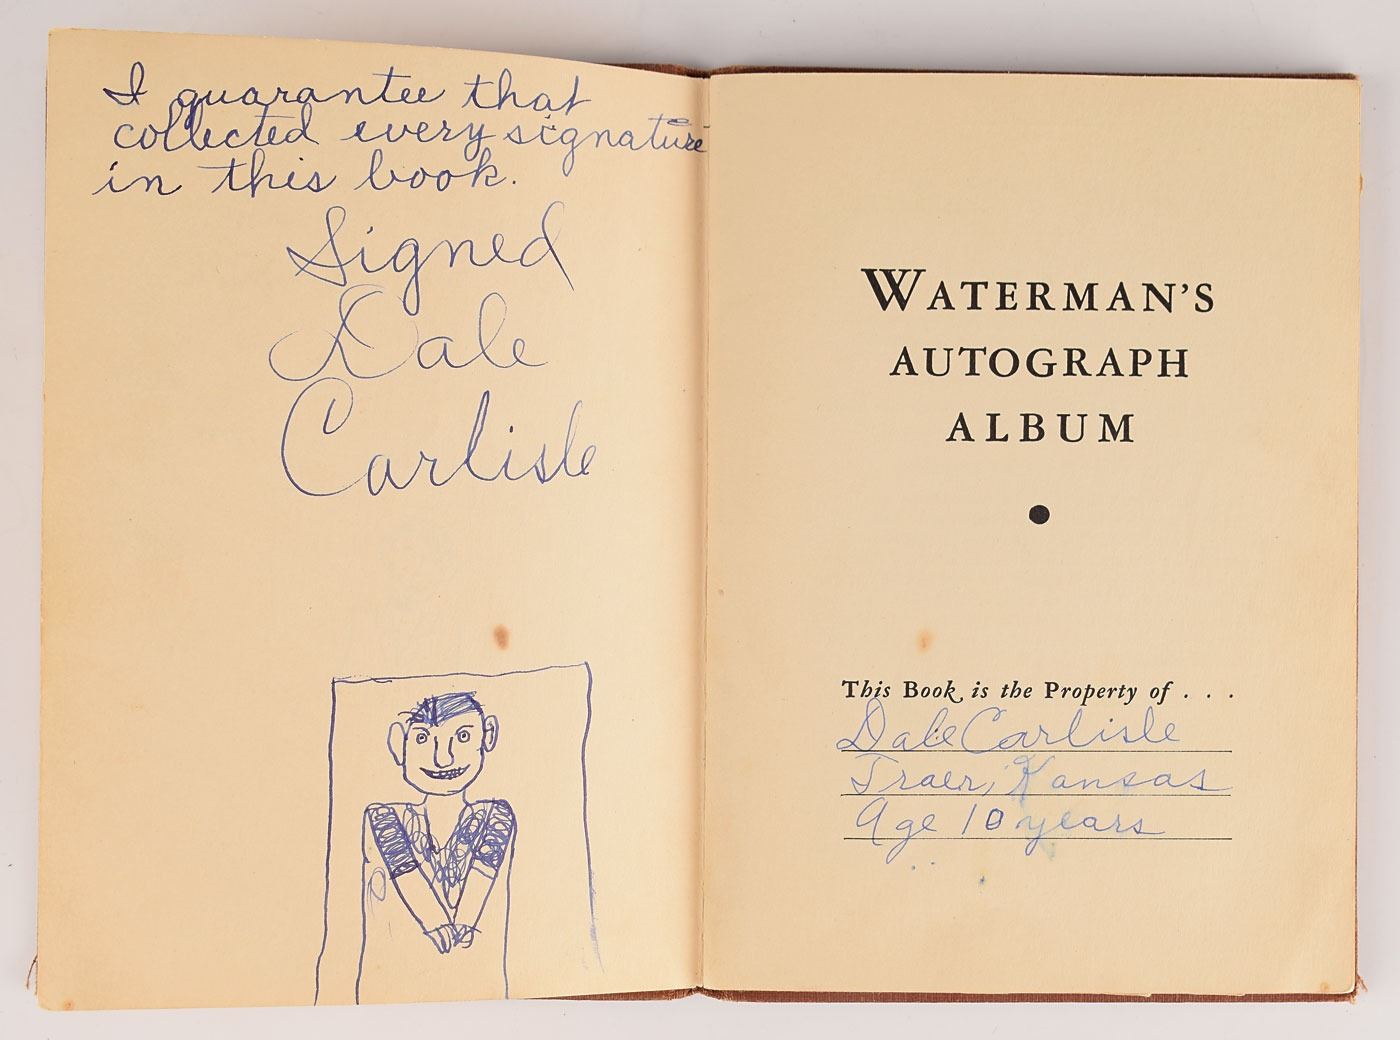 I guarantee that
collected every signature
in this book.
Signed
Dale
Carlisle
WATERMAN'S
AUTOGRAPH
ALBUM
This Book is the Property of . . .
Dale Carlisle
Traer, Kansas
Age 10 years